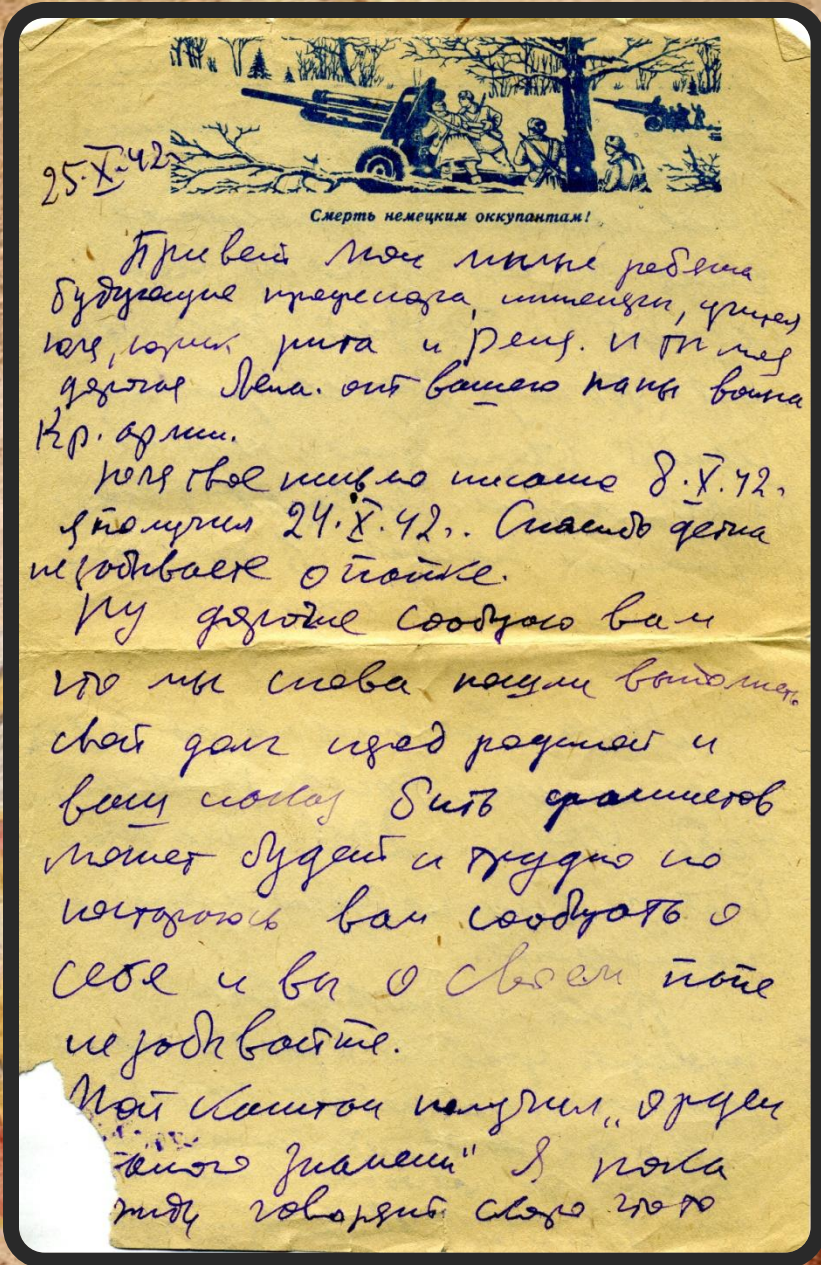 25.X.42г.
Смерть немецким оккупантам!
Привет мои милые ребята
будующие професора, инженеры,
юля, юрик рита и Рена. И ты моя
дорогая Леля. от вашего папы воина
Кр. армии.
Юля твое письмо писано 8.X.42.
я получил 24.X.42г. Спасибо детка
не забываете о папке.
Ну дорогие сообщаю вам
что мы снова пошли выполнять
свой долг перед родиной и
ваш наказ бить фашистов
может будет и трудно но
постараюсь вам сообщать о
себе и вы о своем папе
не забывайте.
Мой Капитан получил „орден
знамени" Я пока
жду говорят скоро что то